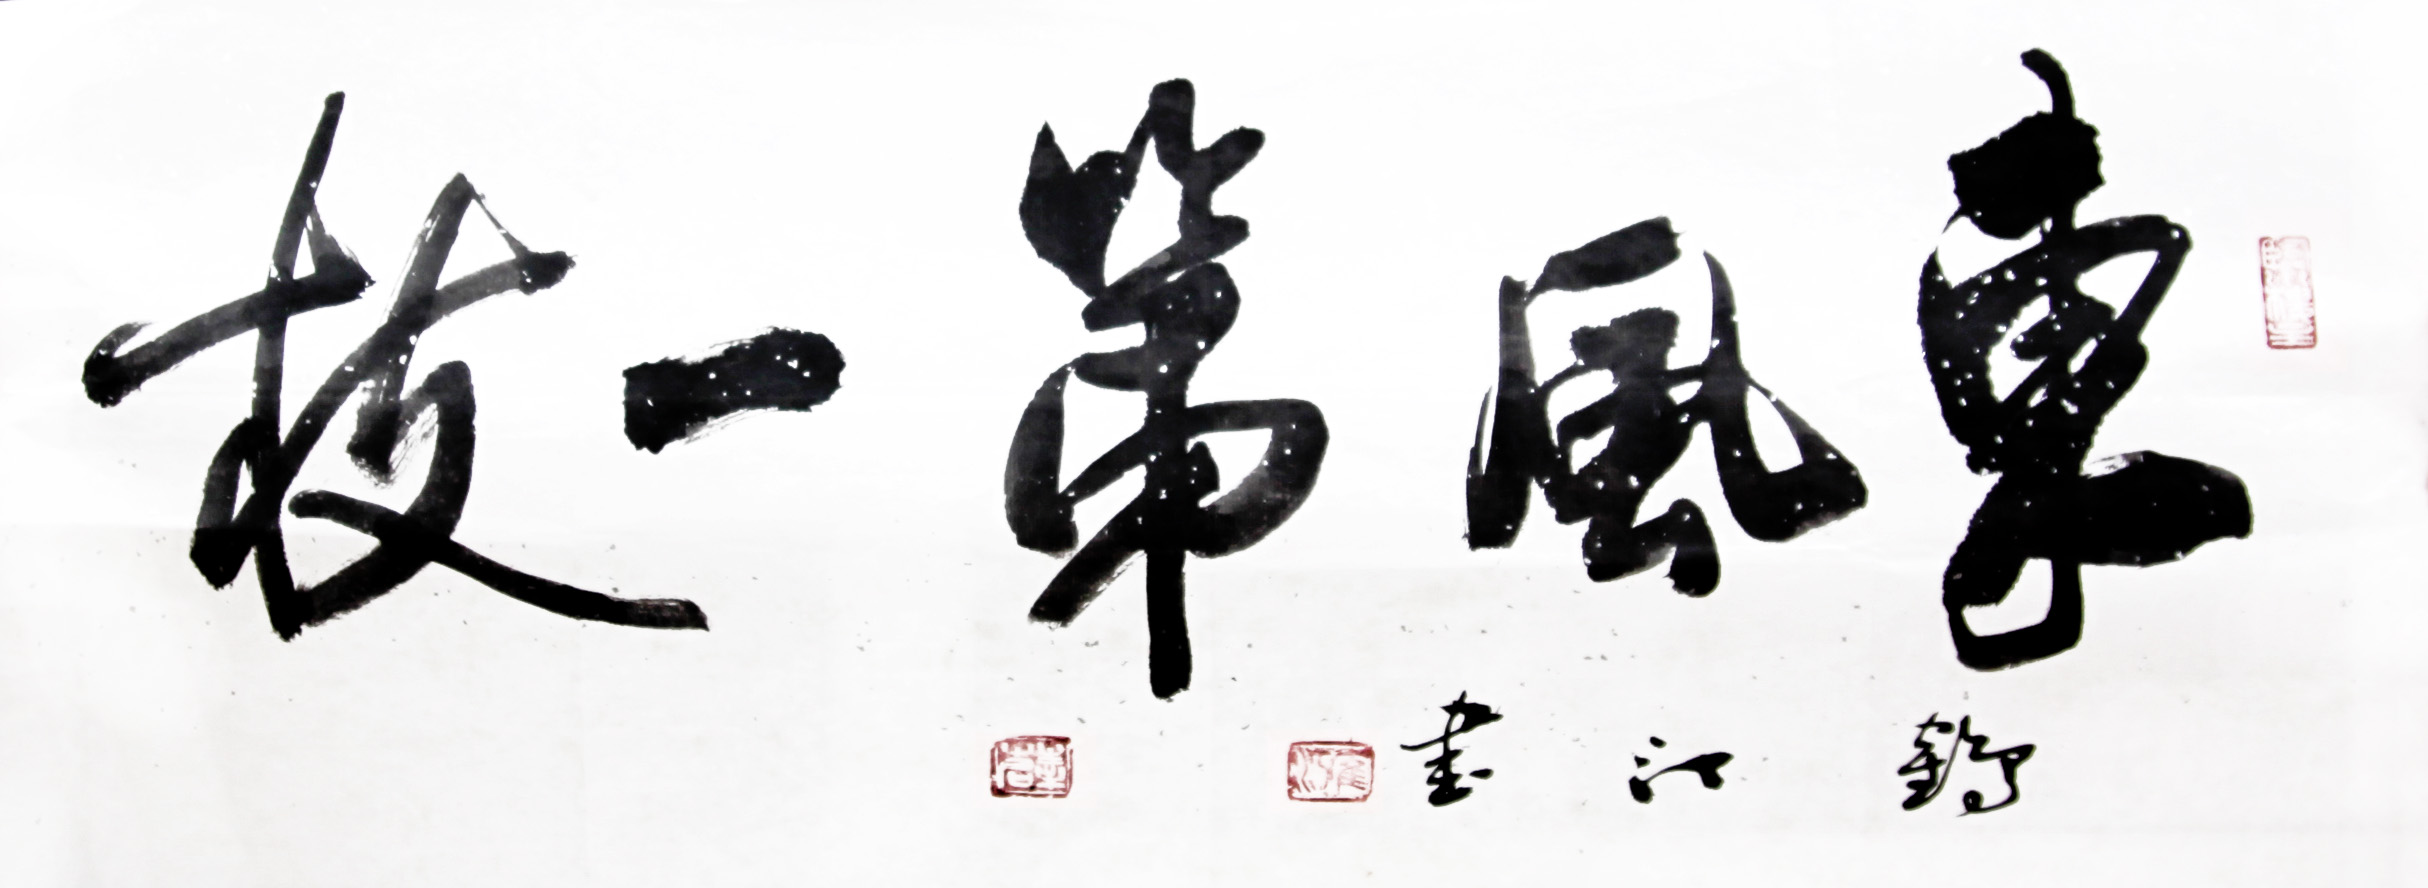 東風第一枝
鶴江書